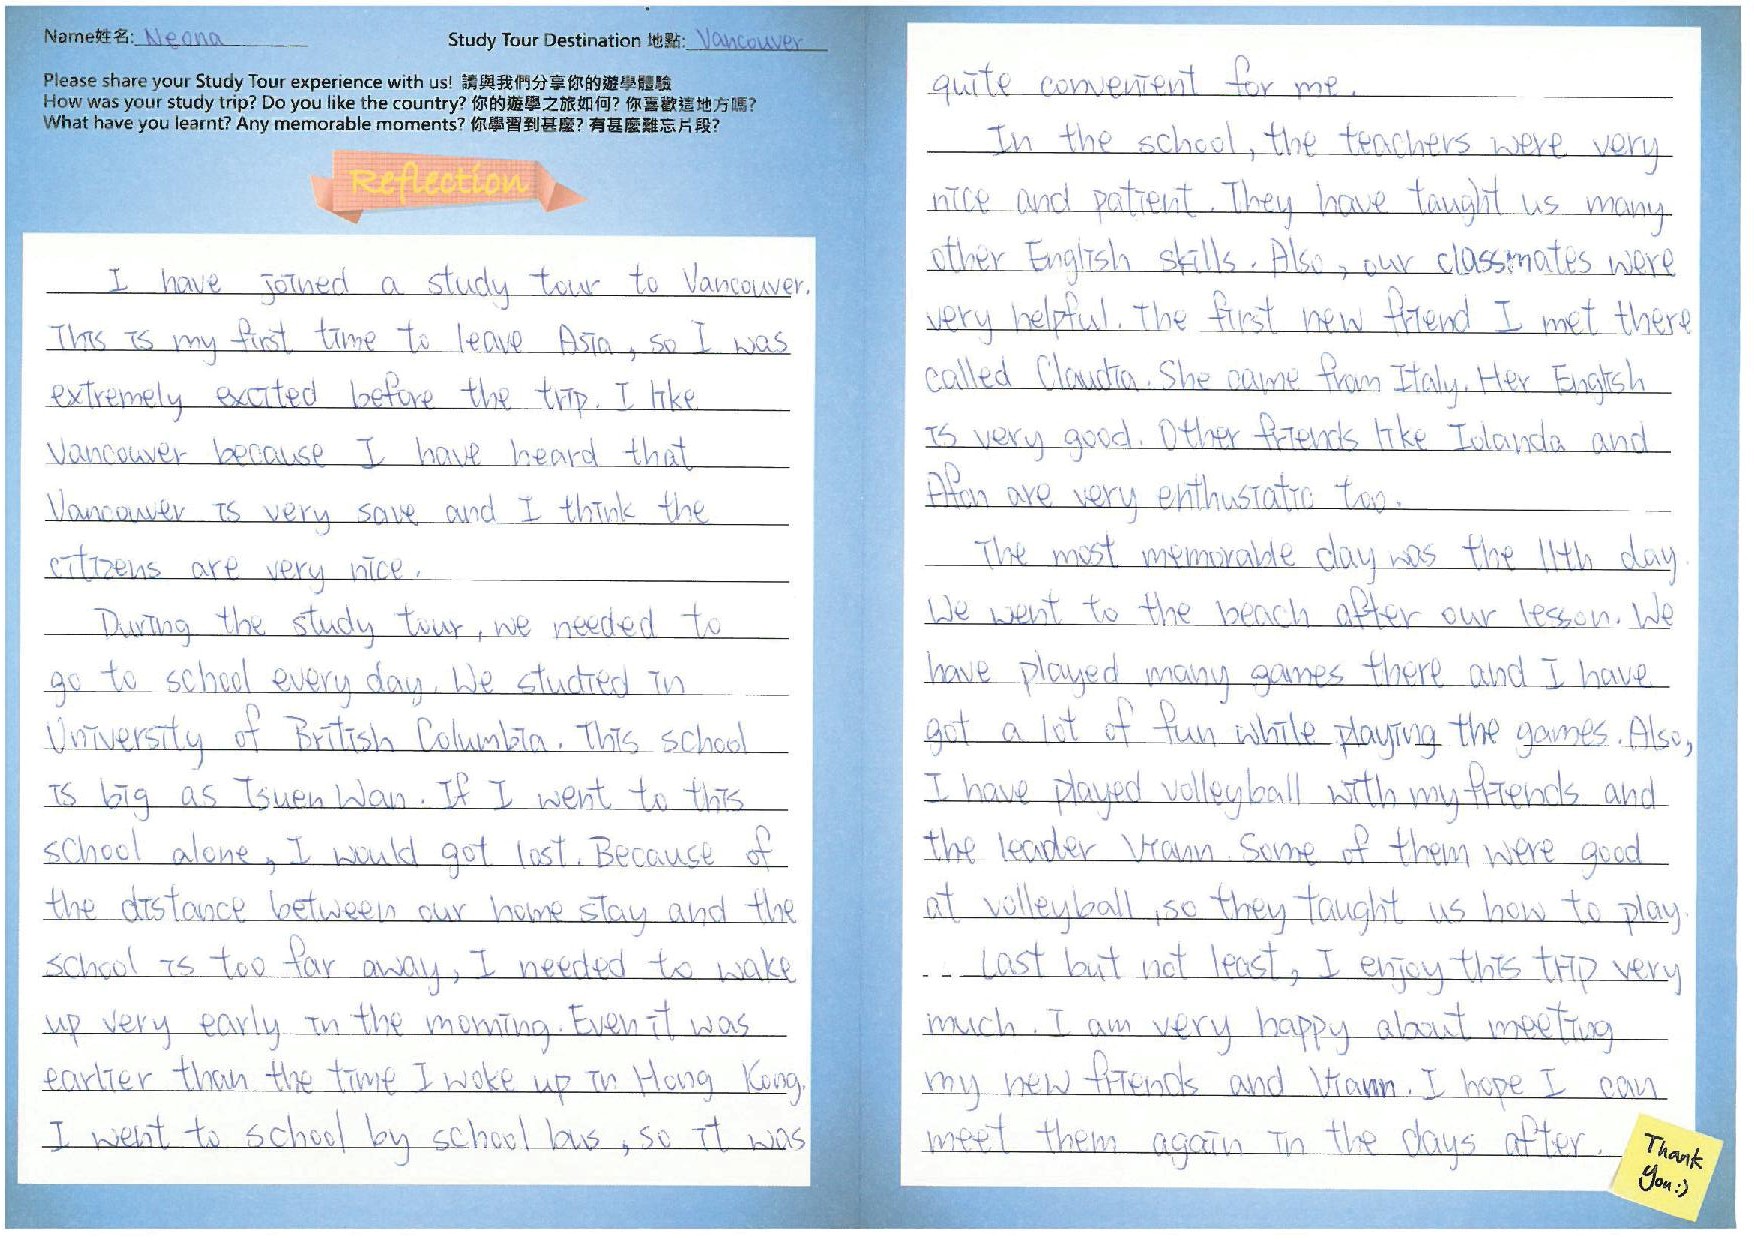 Name姓名: Neona
Study Tour Destination 地點: Vancouver
Please share your Study Tour experience with us! 請與我們分享你的遊學體驗
How was your study trip? Do you like the country? 你的遊學之旅如何? 你喜歡這地方嗎?
What have you learnt? Any memorable moments? 你學習到甚麼? 有甚麼難忘片段?
Reflection
I have joined a study tour to Vancouver.
This is my first time to leave Asia, so I was
extremely excited before the trip. I like
Vancouver because I have heard that
Vancouver is very save and I think the
citizens are very nice.
During the study tour, we needed to
go to school every day. We studied in
University of British Columbia. This school
is big as Tsuen Wan. If I went to this
school alone, I would got lost. Because of
the distance between our home stay and the
school is too far away, I needed to wake
up very early in the morning. Even it was
earlier than the time I woke up in Hong Kong.
I went to school by school bus, so it was
quite convenient for me.
In the school, the teachers were very
nice and patient. They have taught us many
other English skills. Also, our classmates were
very helpful. The first new friend I met there
called Claudia. She came from Italy. Her English
is very good. Other friends like Iolanda and
Afan are very enthusiatic too.
The most memorable day was the 11th day.
We went to the beach after our lesson. We
have played many games there and I have
got a lot of fun while playing the games. Also,
I have played volleyball with my friends and
the leader Viann. Some of them were good
at volleyball, so they taught us how to play.
Last but not least, I enjoy this trip very
much. I am very happy about meeting
my new friends and Viann. I hope I can
meet them again in the days after.
Thank
you:)